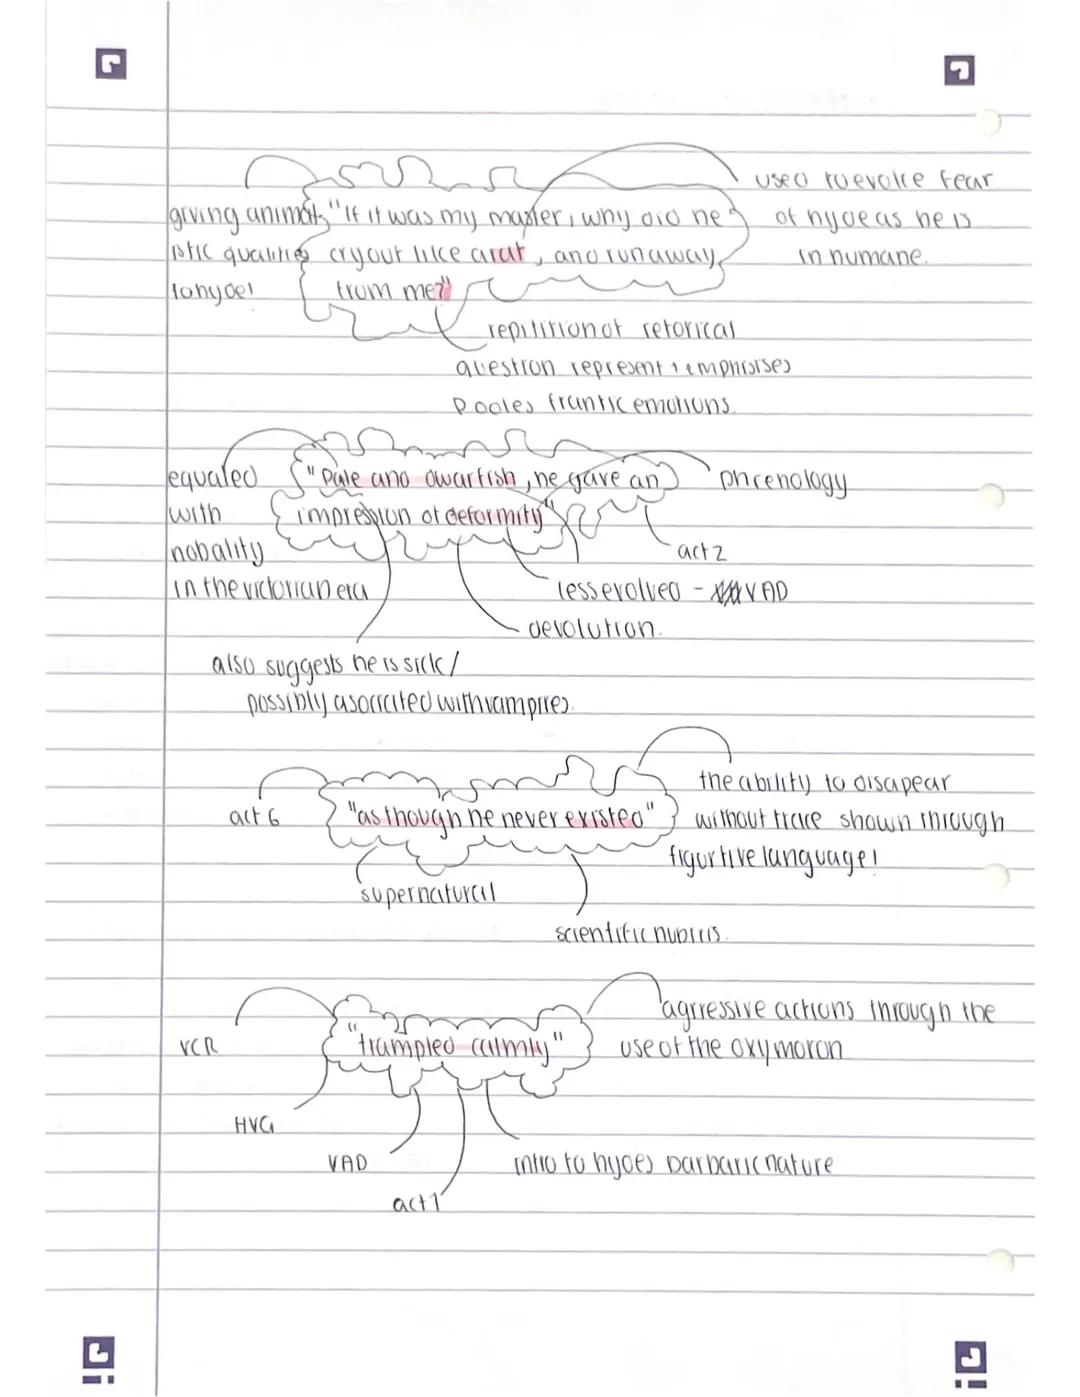 used to evoke fear
giving animal- "If it was my master, why did he
of hyde as he is
istic qualities cry out like a rat, and run away
inhumane.
to hyde!
from me?"
repitition of retorical
question represent + emphisises
Pooles frantic emotions.
equated
"Pale and dwarfish, he gave an
phrenology
with
impression of deformity"
nobality
act 2
in the victorian era
less evolved - VAD
devolution.
also suggests he is sick/
possibly asorcited with vampires.
the ability to disapear
act 6
"as though he never existed"
without trace shown through
figurtive language!
supernatural
scientific hubris.
agrressive actions through the
VCR
"trampled calmly"
use of the oxymoron
HVG
VAD
intro to hydes barbaric nature
act 1